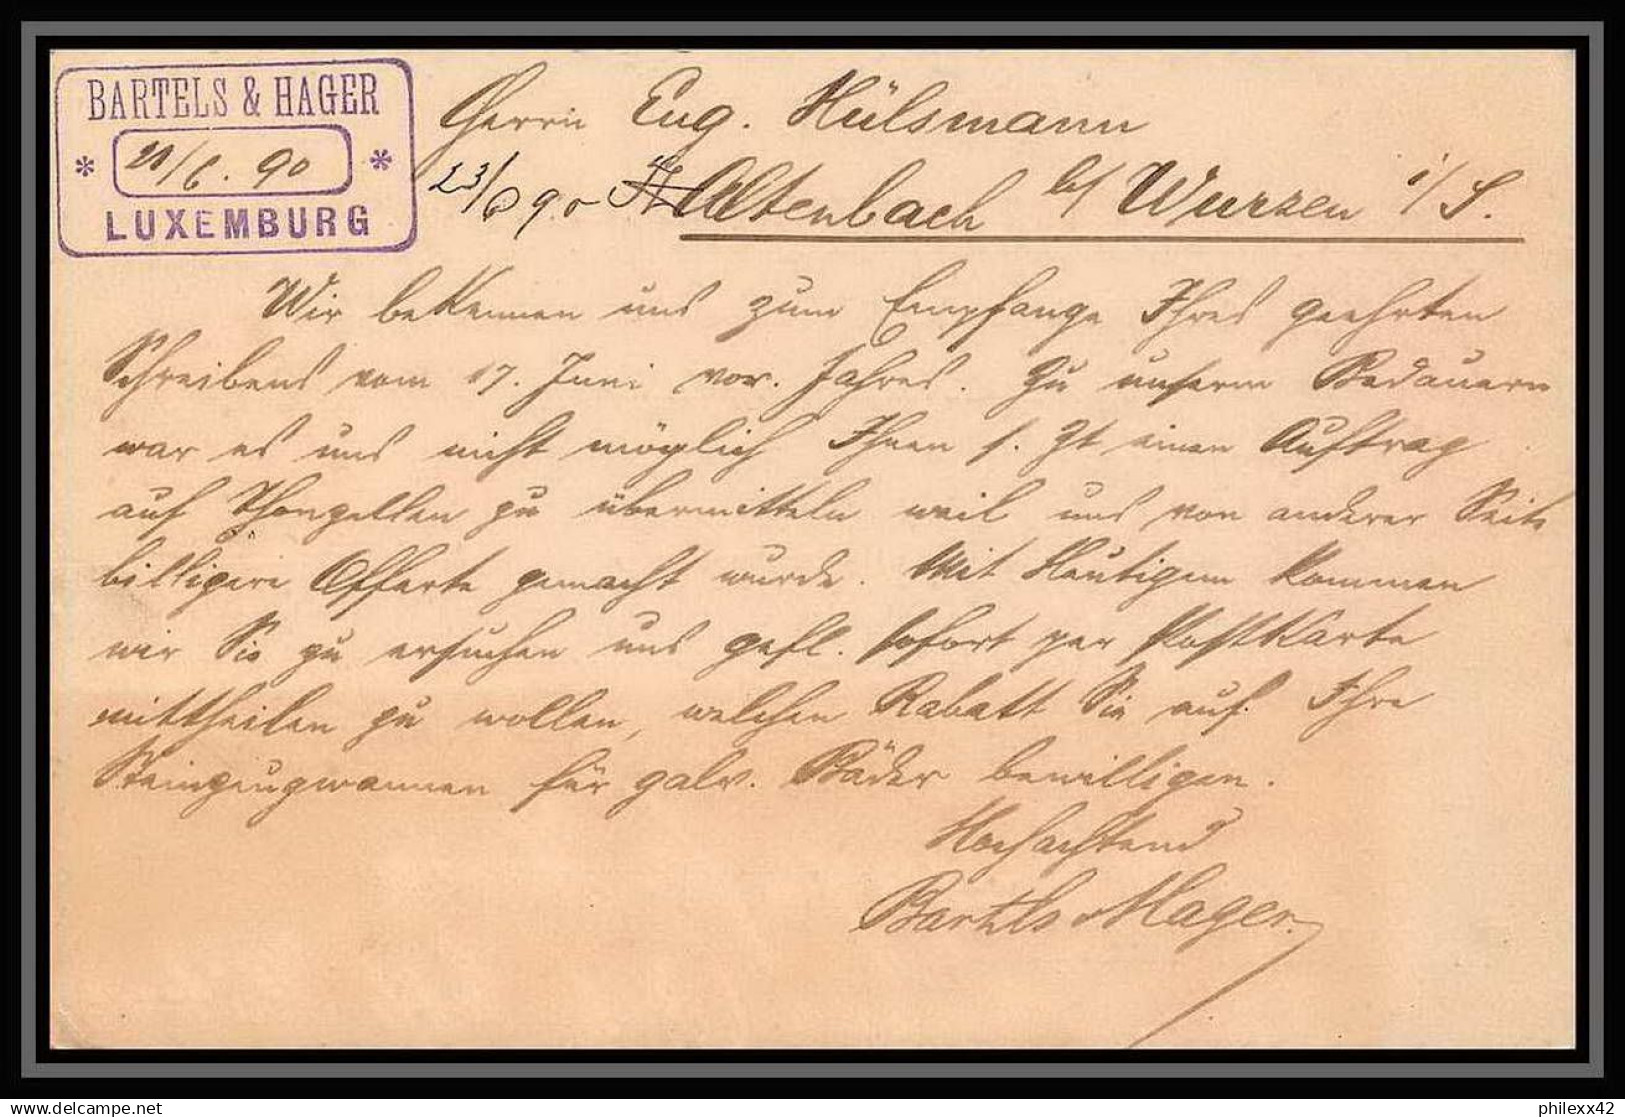 BARTELS & HAGER
20/6. 90
LUXEMBURG
Herrn Eug. Hülsmann
23/6 90 Altenbach b/ Wurzen i/S.
Wir bekennen uns zum Empfange Ihres geehrten
Schreibens vom 17. Juni vor. Jahres. Zu unserm Bedauern
war es uns nicht möglich Ihnen s. Zt einen Auftrag
auf Thonzellen zu übermitteln weil uns von anderer Seite
billigere Offerte gemacht wurde. Mit Heutigem kommen
wir Sie zu ersuchen uns gefl. sofort per Postkarte
mittheilen zu wollen, welchen Rabatt Sie auf Ihre
Steinzeugwannen für galv. Bäder bewilligen.
Hochachtend
Bartels & Hager.
philexx42